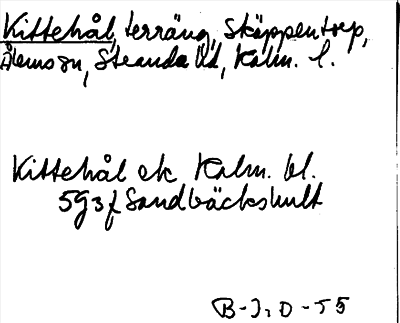 Kittehål, terräng, Skäppentorp,
Ålems sn, Stranda hd, Kalm. l.
Kittehål ek Kalm. bl.
5g3f Sandbäckshult
B-J. O -55